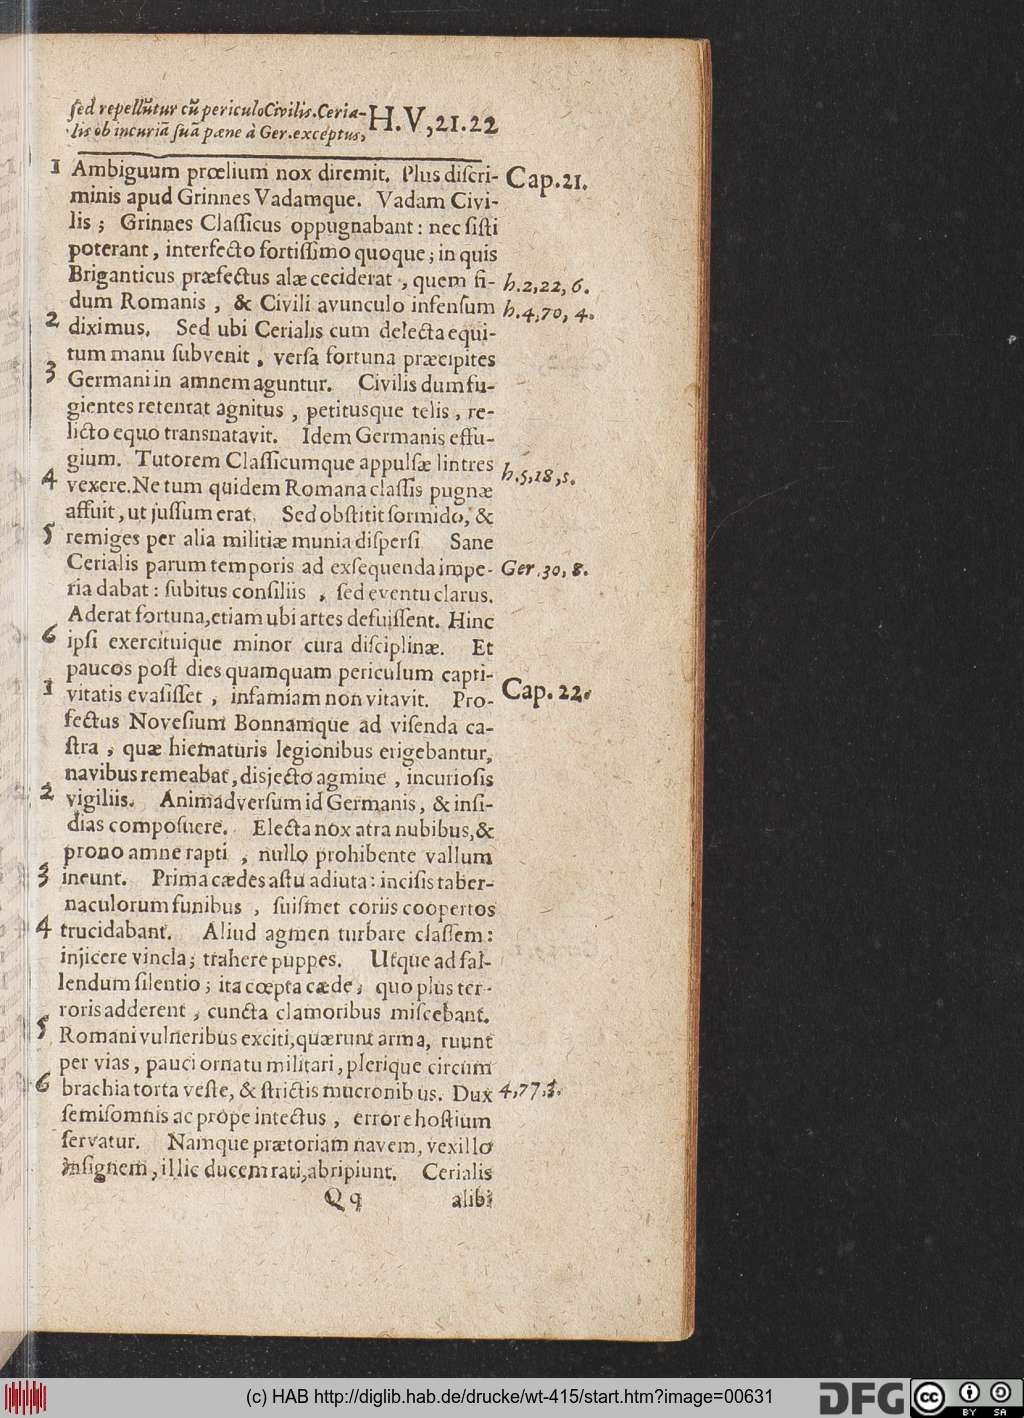 ſed repellūtur cū periculo Civilis. Ceria-
lis ob incuriā ſuā pæne à Ger. exceptus,
H. V, 21. 22
1 Ambiguum prœlium nox diremit. Plus diſcri- Cap. 21.
minis apud Grinnes Vadamque. Vadam Civi-
lis; Grinnes Claſſicus oppugnabant: nec ſiſti
poterant, interfecto fortiſſimo quoque; in quis
Briganticus præfectus alæ ceciderat, quem fi- h. 2, 22, 6.
dum Romanis, & Civili avunculo infenſum h. 4, 70, 4.
2 diximus. Sed ubi Cerialis cum delecta equi-
tum manu ſubvenit, verſa fortuna præcipites
3 Germani in amnem aguntur. Civilis dum fu-
gientes retentat agnitus, petitusque telis, re-
licto equo transnatavit. Idem Germanis effu-
gium. Tutorem Claſſicumque appulſæ lintres h. 5, 18, 5.
4 vexere. Ne tum quidem Romana claſſis pugnæ
affuit, ut juſſum erat. Sed obſtitit formido, &
5 remiges per alia militiæ munia diſperſi Sane
Cerialis parum temporis ad exſequenda impe- Ger. 30, 8.
ria dabat: ſubitus conſiliis, ſed eventu clarus.
Aderat fortuna, etiam ubi artes defuiſſent. Hinc
6 ipſi exercituique minor cura diſciplinæ. Et
paucos poſt dies quamquam periculum capti-
1 vitatis evaſiſſet, infamiam non vitavit. Pro- Cap. 22.
fectus Noveſium Bonnamque ad viſenda ca-
ſtra, quæ hiematuris legionibus erigebantur,
navibus remeabat, disjecto agmine, incurioſis
2 vigiliis. Animadverſum id Germanis, & inſi-
dias compoſuere. Electa nox atra nubibus, &
prono amne rapti, nullo prohibente vallum
3 ineunt. Prima cædes aſtu adiuta: inciſis taber-
naculorum funibus, ſuiſmet coriis coopertos
4 trucidabant. Aliud agmen turbare claſſem:
injicere vincla; trahere puppes. Utque ad fal-
lendum ſilentio; ita cœpta cæde, quo plus ter-
roris adderent, cuncta clamoribus miſcebant.
5 Romani vulneribus exciti, quærunt arma, ruunt
per vias, pauci ornatu militari, plerique circum
6 brachia torta veſte, & ſtrictis mucronibus. Dux 4, 77, 1.
ſemiſomnis ac prope intectus, errore hoſtium
ſervatur. Namque prætoriam navem, vexillo
inſignem, illic ducem rati, abripiunt. Cerialis
Qq alibi
(c) HAB http://diglib.hab.de/drucke/wt-415/start.htm?image=00631
DFG
cc BY SA